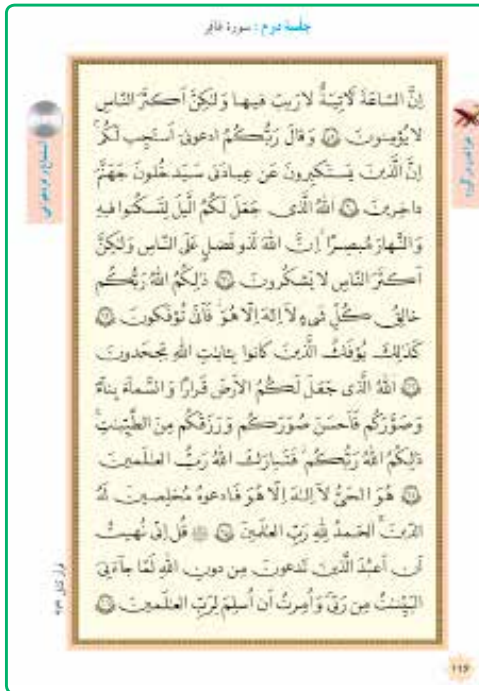 جلسه دوم : سوره غافر
اِنَّ السّاعَةَ لَآتِيَةٌ لا رَيبَ فيها وَلٰكِنَّ اَكثَرَ النّاسِ
لا يُؤمِنونَ ۝ وَ قالَ رَبُّكُمُ ادعونى اَستَجِب لَكُم
اِنَّ الَّذينَ يَستَكبِرونَ عَن عِبادَتى سَيَدخُلونَ جَهَنَّمَ
داخِرينَ ۝ اَللّٰهُ الَّذى جَعَلَ لَكُمُ الَّيلَ لِتَسكُنوا فيهِ
وَ النَّهارَ مُبصِرًا اِنَّ اللّٰهَ لَذو فَضلٍ عَلَى النّاسِ وَلٰكِنَّ
اَكثَرَ النّاسِ لا يَشكُرونَ ۝ ذٰلِكُمُ اللّٰهُ رَبُّكُم
خالِقُ كُلِّ شَىءٍ لا اِلٰهَ اِلّا هُوَ فَاَنّىٰ تُؤفَكونَ ۝
كَذٰلِكَ يُؤفَكُ الَّذينَ كانوا بِـٔايٰتِ اللّٰهِ يَجحَدونَ
۝ اَللّٰهُ الَّذى جَعَلَ لَكُمُ الاَرضَ قَرارًا وَ السَّماءَ بِناءً
وَ صَوَّرَكُم فَاَحسَنَ صُوَرَكُم وَ رَزَقَكُم مِنَ الطَّيِّبٰتِ
ذٰلِكُمُ اللّٰهُ رَبُّكُم فَتَبارَكَ اللّٰهُ رَبُّ العٰلَمينَ
۝ هُوَ الحَىُّ لا اِلٰهَ اِلّا هُوَ فَادعوهُ مُخلِصينَ لَهُ
الدّينَ اَلحَمدُ لِلّٰهِ رَبِّ العٰلَمينَ ۝ قُل اِنّى نُهيتُ
اَن اَعبُدَ الَّذينَ تَدعونَ مِن دونِ اللّٰهِ لَمّا جاءَنِىَ
البَيِّنٰتُ مِن رَبّى وَ اُمِرتُ اَن اُسلِمَ لِرَبِّ العٰلَمينَ ۝
۱۱۶